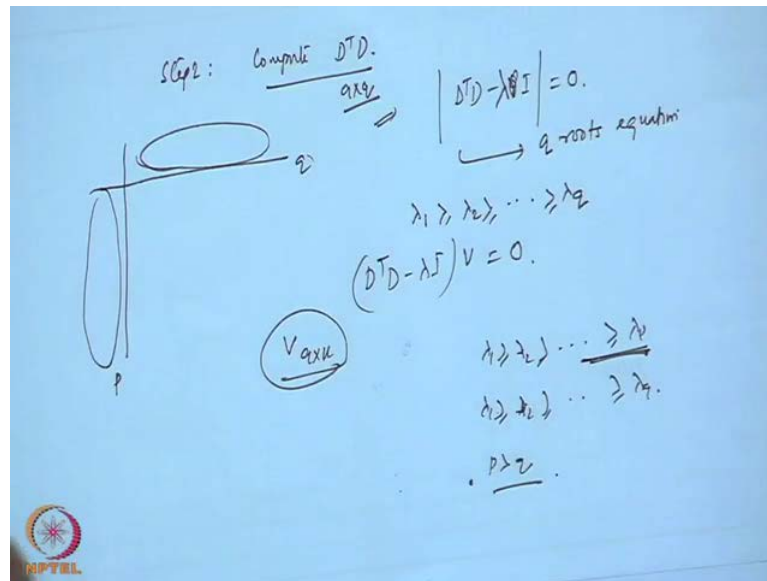 Step2: Compute DᵀD.
q×q
|DᵀD - λI| = 0.
→ q roots equation
q
λ₁ ≥ λ₂ ≥ ... ≥ λq
(DᵀD - λI) V = 0.
V q×k
λ₁ ≥ λ₂ ≥ ... ≥ λp
λ₁ ≥ λ₂ ≥ ... ≥ λq.
p
p > q.
NPTEL